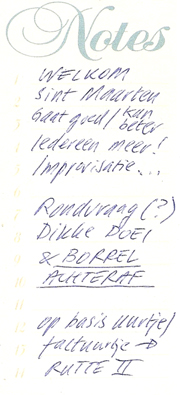 Notes
WELKOM
Sint Maarten
Gaat goed / kan beter
Iedereen meer!
Improvisatie...
Rondvraag (?)
Dikke DOEI
& BORREL
ACHTERAF
op basis uurtje/
factuurtje →
RUTTE II